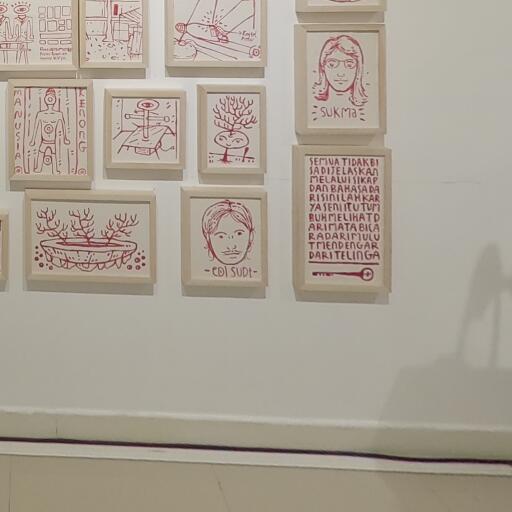 MANUSIA
KENONG
SUKMA
- EDI SUDI -
SEMUA TIDAK BI
SA DIJELASKAN
MELALUI SIKAP
DAN BAHASA DA
RI SINILAH KAR
YA SENI TUTUM
BUH MELIHAT D
ARI MATA BICA
RA DARI MULU
T MENDENGAR
DARI TELINGA